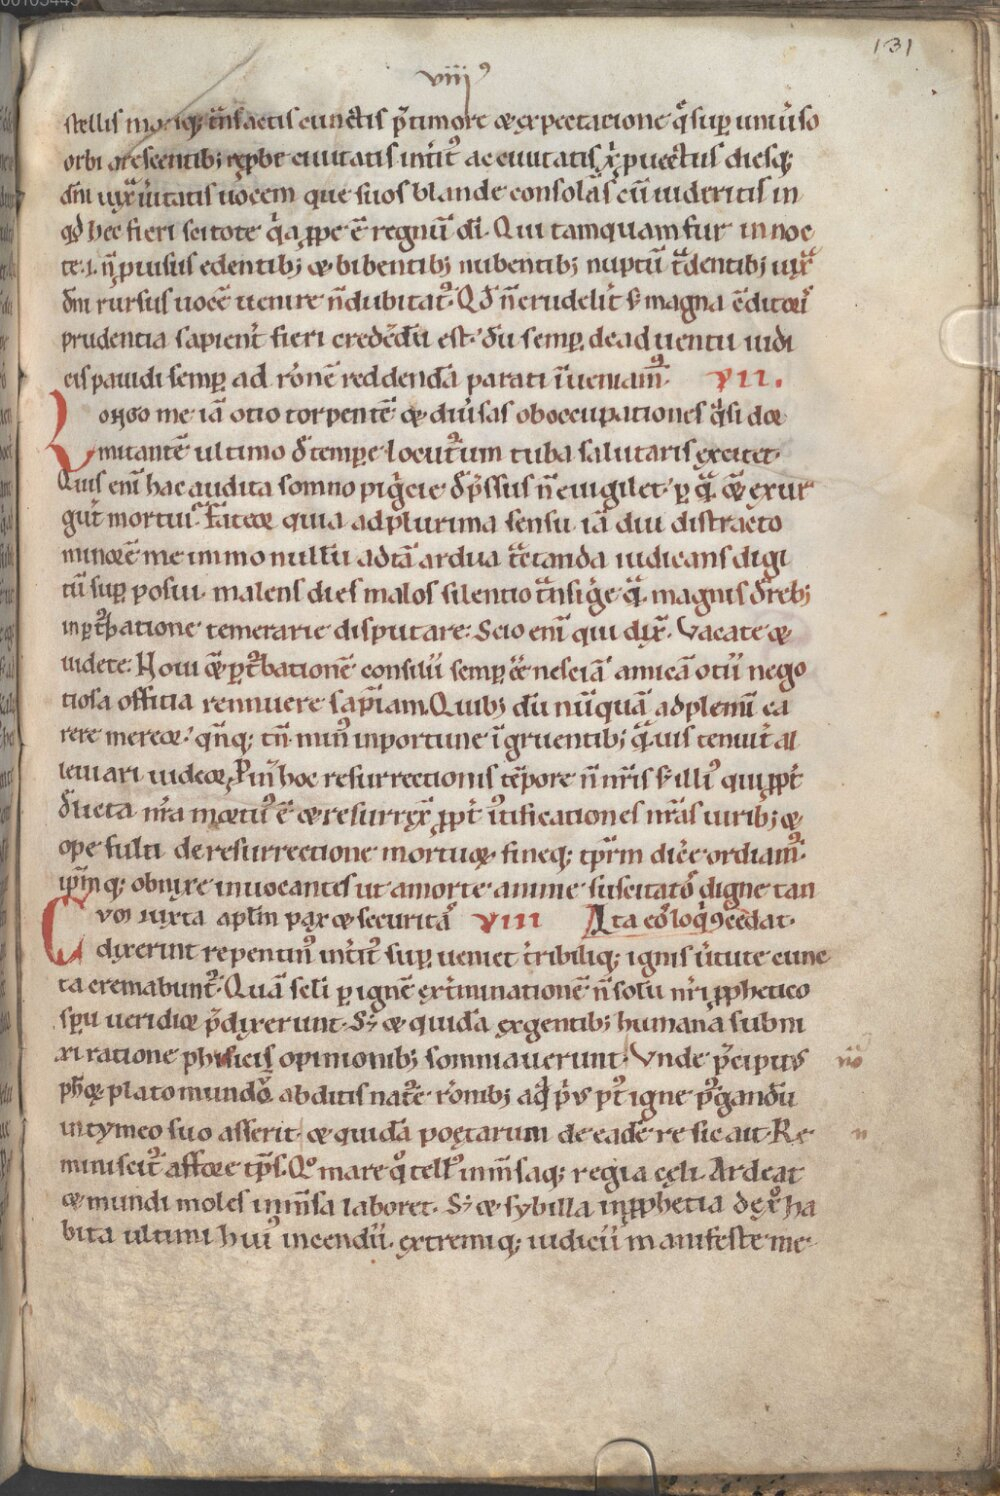 131
viiij⁹
stellis mo iq; t̄nsactis cunctis p̄timore & expectatione q̄ sup̱ uniũso
orbi arescentib; rep̱be ciuitatis int̃it⁹ ac ciuitatis xp̄i puectus diesq;
dn̄i iux̄ ũitatis uocem que suos blande consolāš cū uideritis in
qd̄ hec fieri scitote q̃a ꝓpe ē regnū di̅. Qui tamquam fur in noc
te .i. n̄ p̱uisus edentib; & bibentib; nubentib; nuptū t̃dentib; iux̄
dn̄i rursus uocē uenire n̄ dubitat̃. Qd̄ n̄ crudelit̃ s; magna
prudentia sapient̃ fieri credēdū est. dū semp̱ de aduentu iudi
cis pauidi semp̱ ad rōnē reddendā parati īueniam⁹. VII.
Rogo me iā otio torpentē & diũsas ob occupationes q̃si doc
mitantē ultimo d̄ temp̱e locut̃um tuba salutaris excitet.
Quis enī hac audita somno pig̃cie dp̄ssus n̄ euigilet. p̱ q̃ oēs exur
gūt mortui. Fateor quia ad plurima sensu iā diu distracto
minorē me immo nullū ad tā ardua t̃ctanda iudicans digi
tū sup̱ posui. malens dies malos silentio t̃nsiḡe q̃ magnis d̄ reb;
in p̱t̃batione temerarie disputare. Scio enī qui dix̄. Vacate &
uidete. Noui p̱t̃bationē consilii semp̱ nesciā amicā otii nego
tiosa officia rennuere sap̄iam. Quib; dū nūquā ad plenū ca
rere mereor. qn̄q; tn̄ min⁹ inportune īgruentib; q̃uis tenuit̃ al
leuiari uideor. P̱in hoc resurrectionis tēpore n̄ nr̄is s; illi⁹ qui ꝓpt̃
dilicta nr̄a mortu⁹ ē & resurrex̄ ꝓpt̃ iustificationes nr̄as uirib; &
ope fulti de resurrectione mortuor̨ fineq; tp̄rm dic̃e ordiam⁹.
ip̄mq; obnixe inuocantes ut a morte anime suscitatos digne tan
Cvm iuxta aplm̄ pax & securitas VIII Ita eos loq̃ ꝯcedat.
dixerint repentin⁹ int̃it⁹ sup̱ueniet t̃ribiliq; ignis ũtute cunc
ta cremabunt̃. Quā scl̄i p̱ ignē ext̃minationē n̄ solū nr̄i ꝓphetico
spū ueridici p̄dixerunt. S; & quidā ex gentib; humana submi
xi ratione phisicis opinionib; somniauerunt. Vnde p̄cipuus
phōr̨ plato mundū abditis nat̃e rōnib; aq̃ p̄us p⁹t igne p̱gandū
in tymeo suo asserit. & quidā poetarum de eadē re sic ait. Re
miniscit̃ affore tp̄s. Qo mare qo tell⁹ inm̄saq; regia celi. Ardeat
& mundi moles inm̄sa laboret. S; & sybilla in ꝓphetia d̄ xp̄o ha
bita ultimi hui⁹ incendii. extremiq; iudicii manifeste me